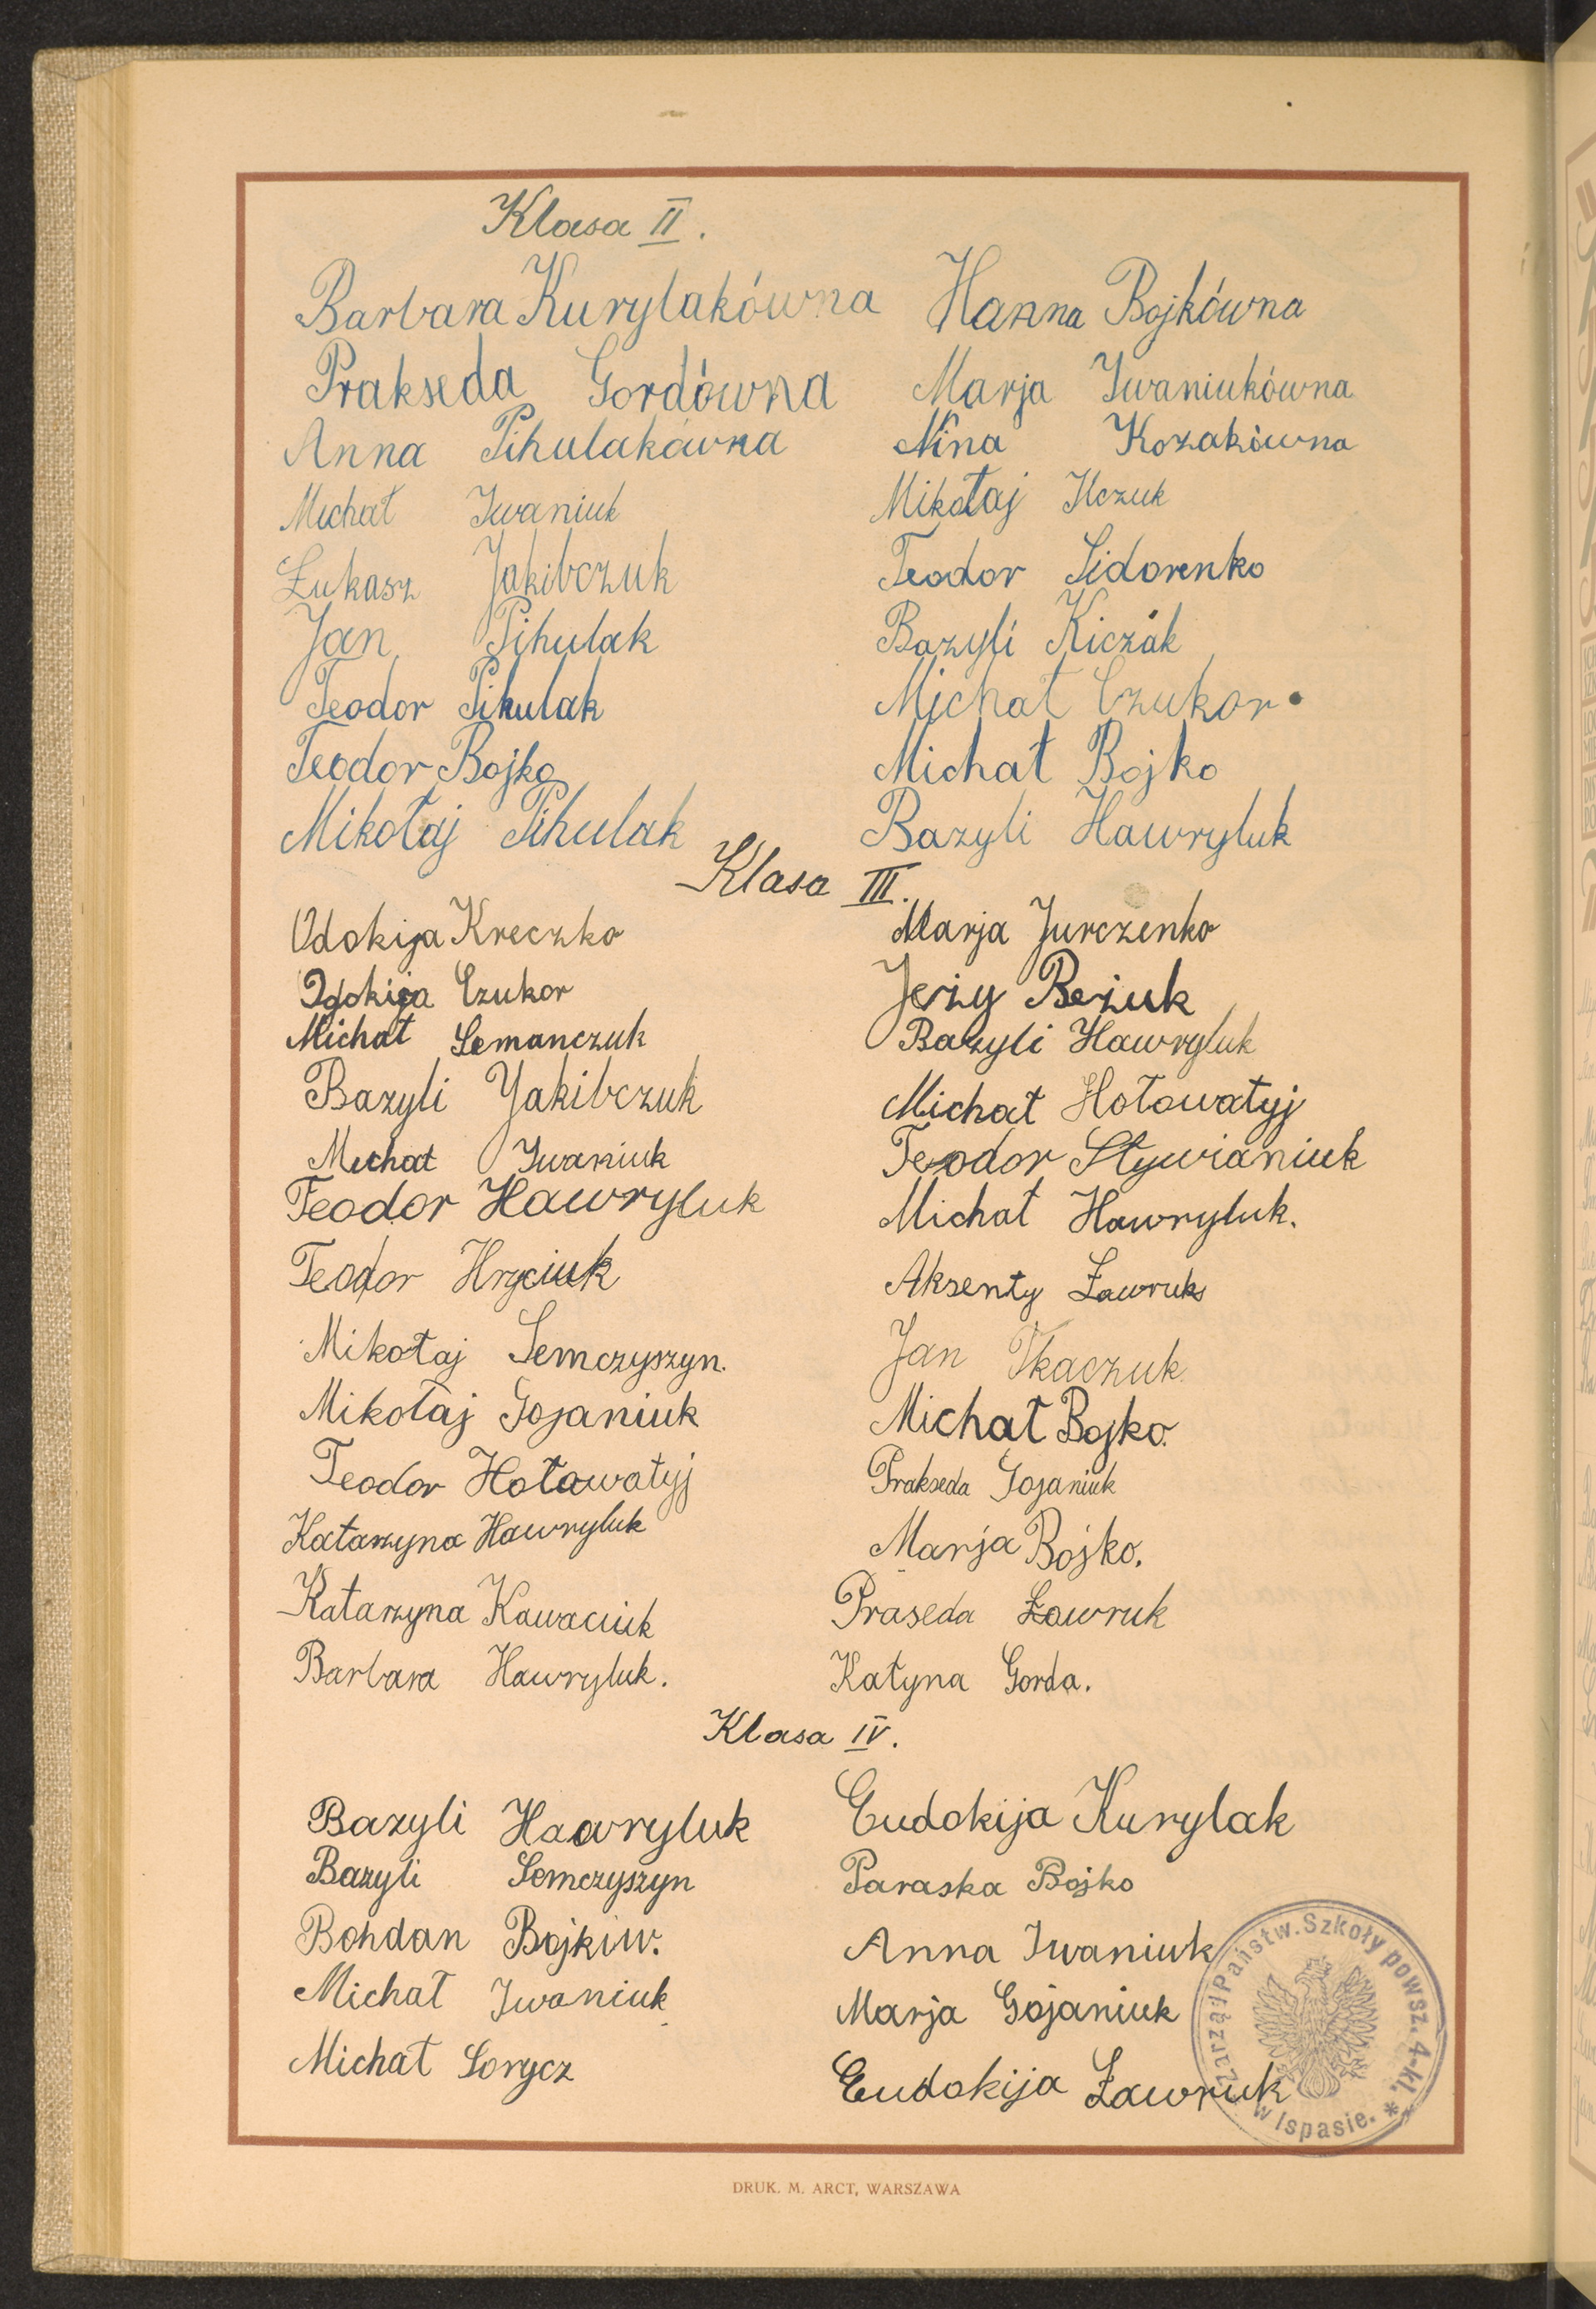 Klasa II.
Barbara Kurylakówna
Prakseda Gordówna
Anna Pihulakówna
Michał Iwaniuk
Łukasz Jakibczuk
Jan Pihulak
Teodor Pihulak
Teodor Bojko
Mikołaj Pihulak
Hanna Bojkówna
Marja Iwaniukówna
Nina Kozakówna
Mikołaj Ilczuk
Teodor Sidorenko
Bazyli Kiczak
Michał Czukor
Michał Bojko
Bazyli Hawryluk
Klasa III.
Odokija Kreczko
Odokija Czukor
Michał Semanczuk
Bazyli Jakibczuk
Michał Iwaniuk
Teodor Hawryluk
Teodor Hryciuk
Mikołaj Semczyszyn.
Mikołaj Gojaniuk
Teodor Hołowatyj
Katarzyna Hawryluk
Katarzyna Kawaciuk
Barbara Hawryluk.
Marja Jurczenko
Jerzy Beżuk
Bazyli Hawryluk
Michał Hołowatyj
Teodor Stywianiuk
Michał Hawryluk.
Aksenty Ławruk
Jan Tkaczuk
Michał Bojko.
Prakseda Gojaniuk
Marja Bojko.
Praseda Ławruk
Katyna Gorda.
Klasa IV.
Bazyli Hawryluk
Bazyli Semczyszyn
Bohdan Bojkiw.
Michał Iwaniuk
Michał Sorycz
Eudokija Kurylak
Paraska Bojko
Anna Iwaniuk
Marja Gojaniuk
Eudokija Ławruk
Zarząd Państw. Szkoły powsz. 4-kl. * w Ispasie. *
DRUK. M. ARCT, WARSZAWA